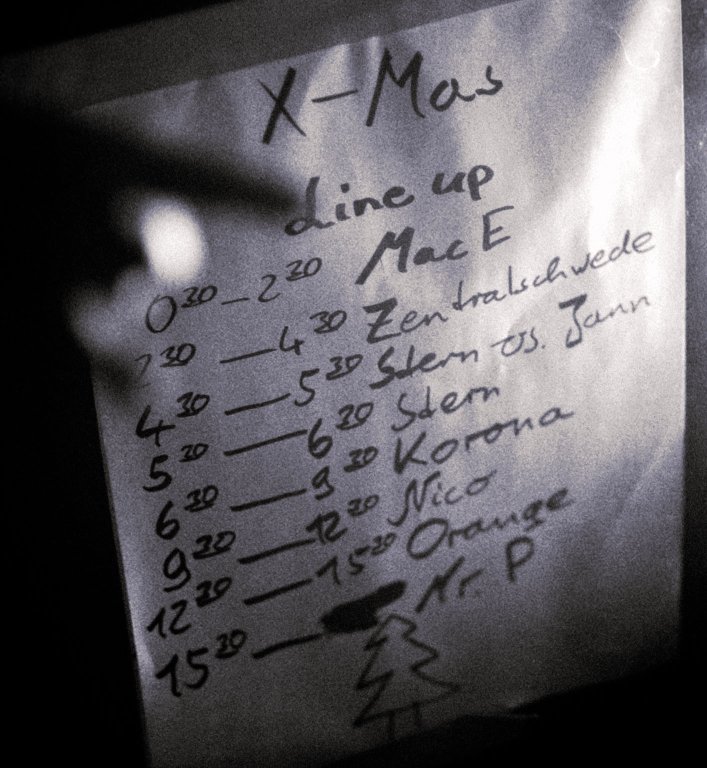 X-Mas
Line up
0 30 - 2 30 Mac E
2 30 — 4 30 Zentralschwede
4 30 — 5 30 Stern vs. Jann
5 30 — 6 30 Stern
6 30 — 9 30 Korona
9 30 — 12 30 Nico
12 30 — 15 30 Orange
15 30 — Mr. P